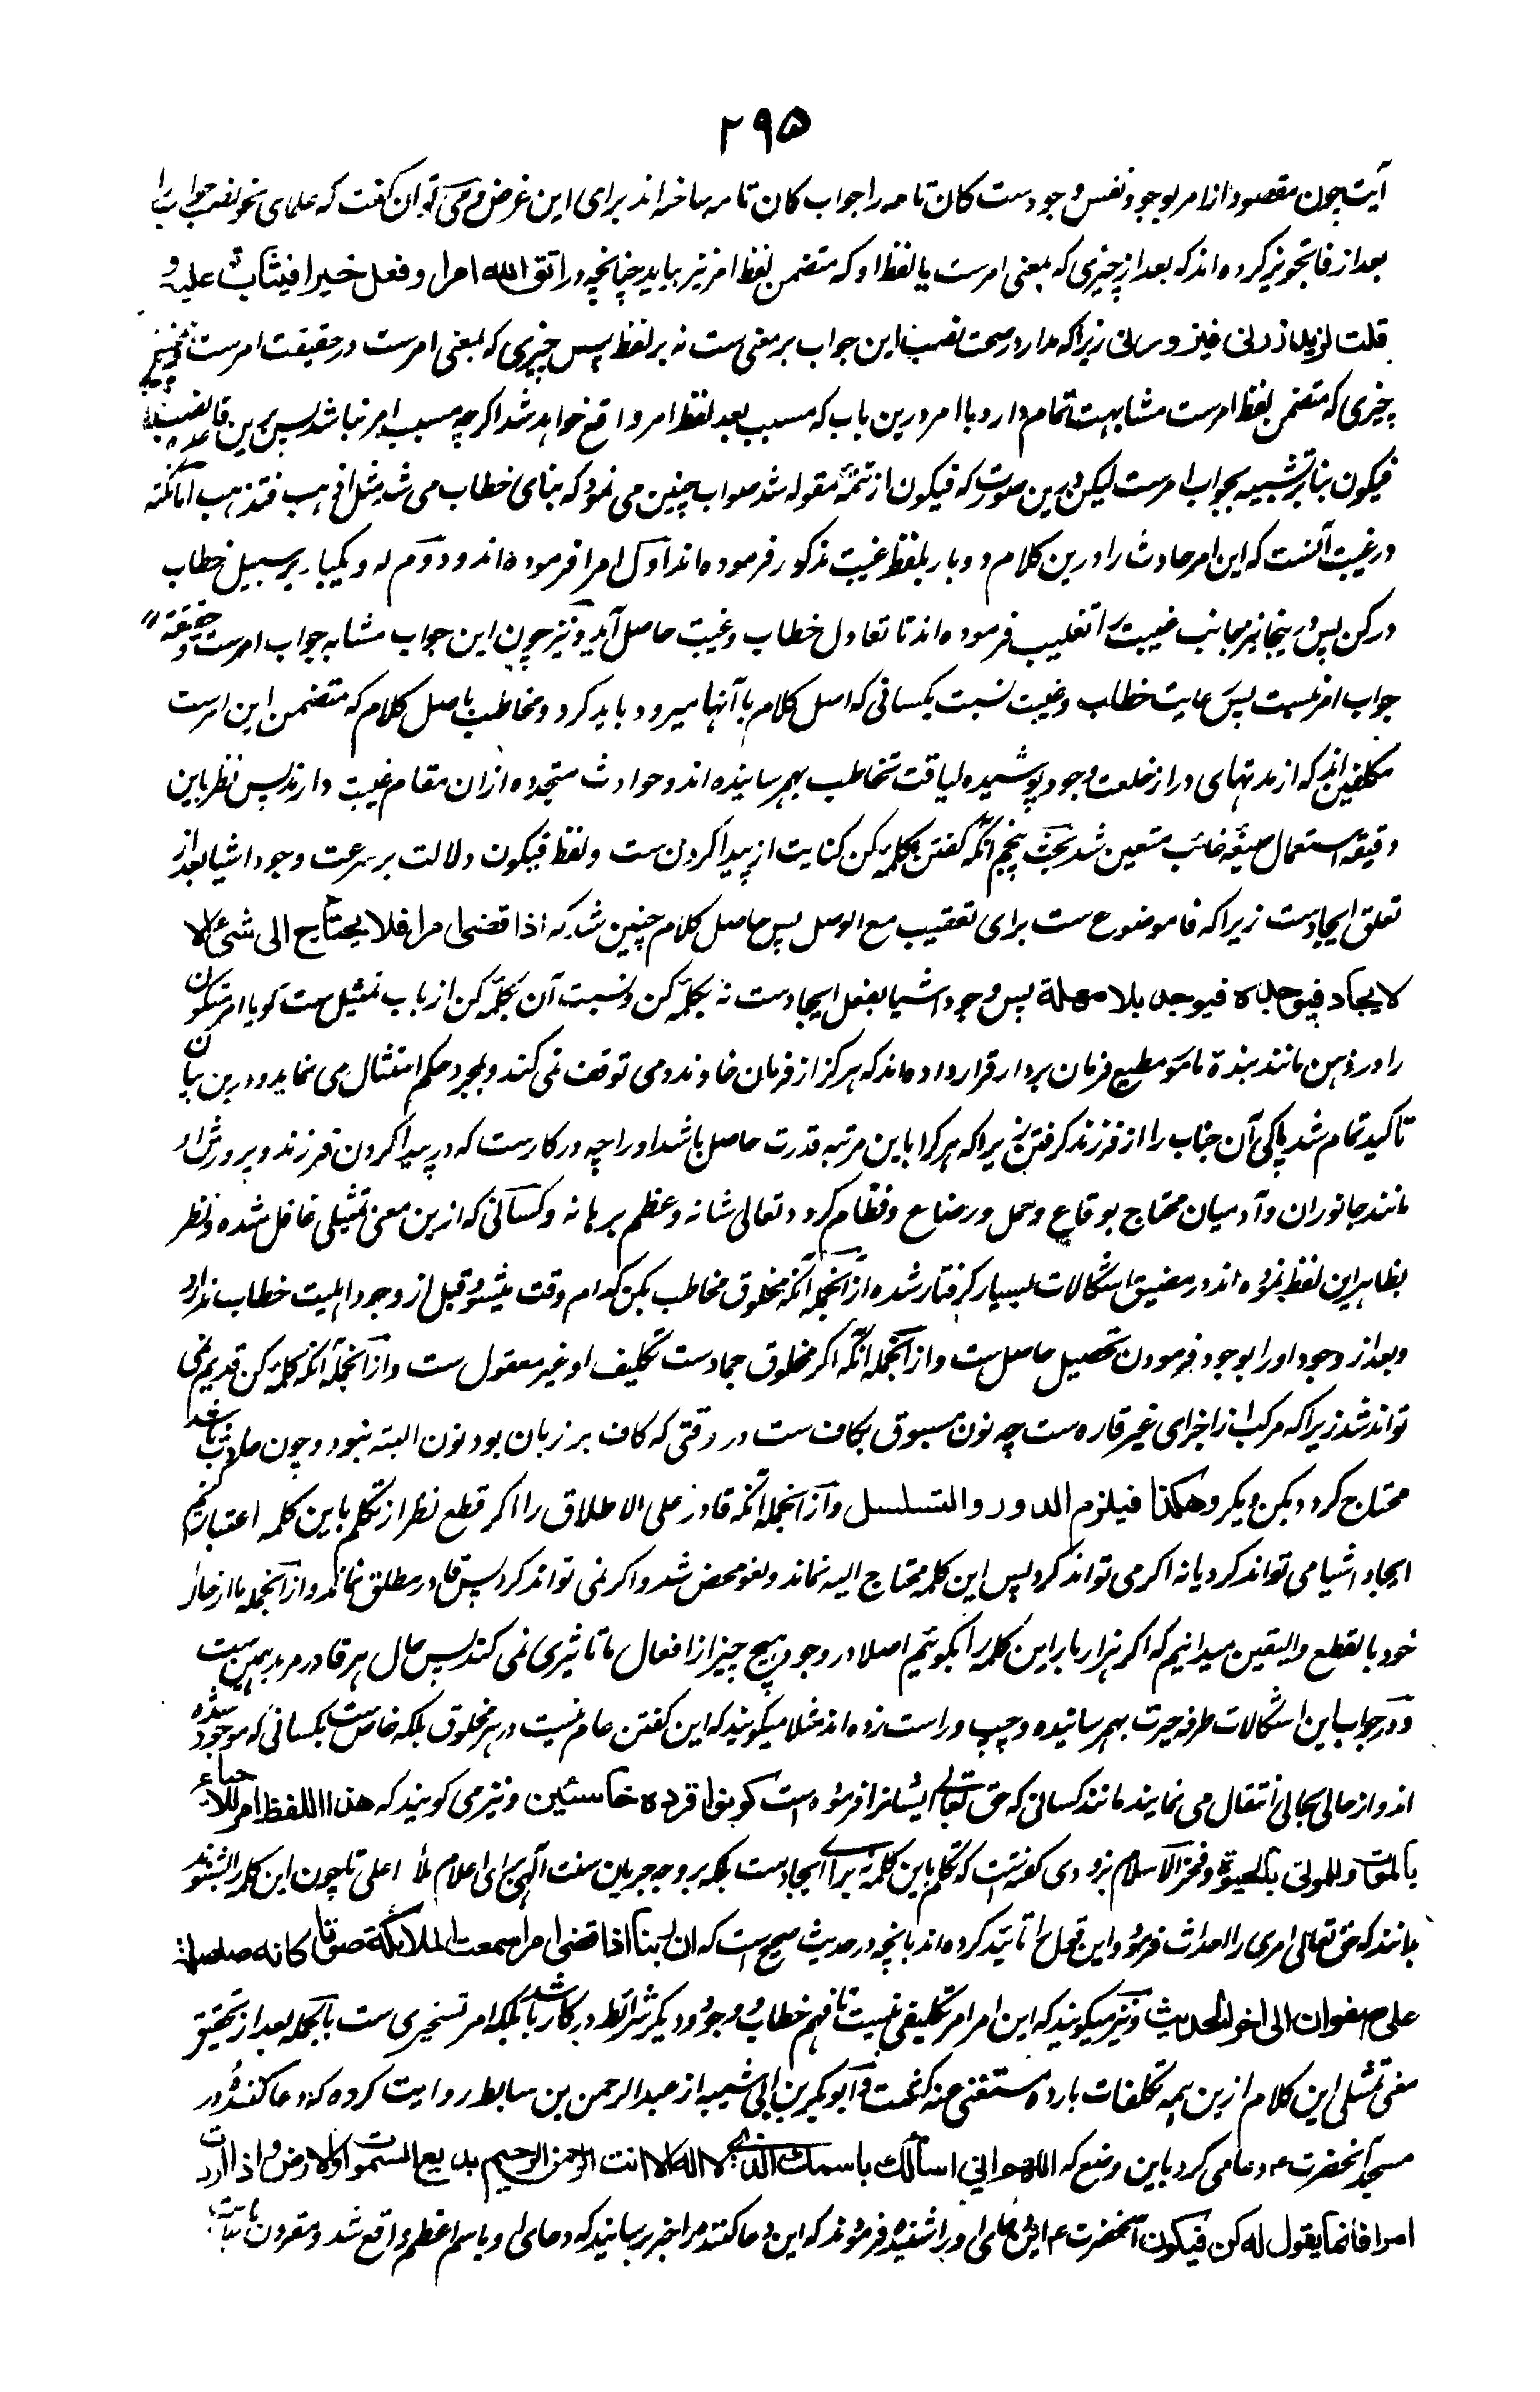 ۲۹۵
آیت چون مقصود از امر بوجود نفس وجودست کان تامه را جواب کان تامه ساخته اند برای این غرض و می توان گفت که علمای نحو نصب جواب را
بعد از فا تجویز کرده اند که بعد از چیزی که بمعنی امرست یا لفظ او که متضمن لفظ امر نیز بیاید چنانچه در اتق الله امرا و فعل خیرا فیثاب علیه و
زیرا که مدار در صحت نصب این جواب بر معنی ست نه بر لفظ پس چیزی که بمعنی امرست در حقیقت امرست
چیزی که متضمن لفظ امرست مشابهت تمام دارد با امر درین باب که مسبب بعد لفظ امر واقع خواهد شد اگرچه مسبب امر نباشد پس برین قاعده نصب
فیکون بنا بر تشبیه بجواب امرست لیکن درین صورت که فیکون از تتمهٔ مقوله شد صواب چنین می نمود که بنای خطاب می شد مثل اذهب فتذهب اما نکته
در غیبت آنست که این امر حادث را درین کلام دو بار بلفظ غیبت مذکور فرموده اند اول امرا فرموده اند و دوم له و یکبار بر سبیل خطاب
در کن پس درینجا نیز جانب غیبت را تغلیب فرموده اند تا تعادل خطاب و غیبت حاصل آید و نیز چون این جواب مشابه جواب امرست و حقیقة
جواب امر نیست پس رعایت خطاب و غیبت نسبت بکسانی که اصل کلام با آنها میرود باید کرد و مخاطب باصل کلام که متضمن این امرست
مکلفین اند که از مدتهای دراز خلعت وجود پوشیده لیاقت تخاطب بهم رسانیده اند و حوادث متجدده ازان مقام غیبت دارند پس نظر باین
دقیقه استعمال صیغهٔ غائب متعین شد بحث پنجم آنکه گفتن کلمهٔ کن کنایت از پیدا کردن ست و لفظ فیکون دلالت بر سرعت وجود اشیا بعد از
تعلق ایجادست زیرا که فا موضوع ست برای تعقیب مع الوصل پس حاصل کلام چنین شد که اذا قضی امرا فلا یحتاج الی شئ الا
لایجاد فیوجده فیوجد بلا مهلة پس وجود اشیا بفعل ایجادست نه بکلمهٔ کن و نسبت آن بکلمهٔ کن از باب تمثیل ست گویا امر متکون
را در ذهن مانند بندهٔ مامور مطیع فرمان بردار قرار داده اند که هرگز از فرمان خاوند دمی توقف نمی کند و بمجرد حکم امتثال می نماید و درین بیان
تاکید تمام شد پاکی آن جناب را از فرزند گرفتن زیرا که هر کرا باین مرتبه قدرت حاصل باشد او را چه درکارست که در پیدا کردن فرزند و پرورش او
مانند جانوران و آدمیان محتاج بوقاع و حمل و رضاع و فطام گردد تعالی شانه و عظم برهانه و کسانی که ازین معنی تمثیلی غافل شده و نظر
بظاهر این لفظ نموده اند در مضیق اشکالات بسیار گرفتار شده از آنجمله آنکه مخلوق مخاطب بکن کدام وقت میشود قبل از وجود اهلیت خطاب ندارد
و بعد از وجود او را بوجود فرمودن تحصیل حاصل ست و از آنجمله آنکه اگر مخلوق جمادست تکلیف او غیر معقول ست و از آنجمله آنکه کلمهٔ کن قدیم نمی
تواند شد زیرا که مرکب از اجزای غیر قاره ست چه نون مسبوق بکاف ست در وقتی که کاف بر زبان بود نون البته نبود و چون حادث باشد
محتاج گردد بکن دیگر و هکذا فیلزم الدور والتسلسل و از آنجمله آنکه قادر علی الاطلاق را اگر قطع نظر از تکلم باین کلمه اعتبار کنیم
ایجاد اشیا می تواند کرد یا نه اگر می تواند کرد پس این کلمه محتاج الیه نماند و لغو محض شد و اگر نمی تواند کرد پس قادر مطلق نماند و از آنجمله ما از حال
خود بالقطع والیقین میدانیم که اگر هزار بار این کلمه را بگوئیم اصلا در وجود هیچ چیز از افعال ما تاثیری نمی کند پس حال هر قادر مرید همین ست
و در جواب این اشکالات طرفه حیرت بهم رسانیده و چپ و راست زده اند مثلا میگویند که این گفتن عام نیست در هر مخلوق بلکه خاص ست بکسانی که موجود شده
اند و از حالی بحالی انتقال می نمایند مانند کسانی که حق تعالی ایشانرا فرموده است کونوا قردة خاسئین و نیز می گویند که هذا اللفظ امر للاحیاء
بالموت وللموتی بالحیوة و فخر الاسلام بزدوی گفته است که تکلم باین کلمه نه برای ایجادست بلکه بر وجه جریان سنت الهی برای اعلام ملأ اعلی تا چون این کلمه را بشنوند
بدانند که حق تعالی امری را احداث فرمود و این قول را تائید کرده اند بانچه در حدیث صحیح است که ان ربنا اذا قضی امرا سمعت الملائکة صوتا کانه صلصلة
علی صفوان الی اخر الحدیث و نیز میگویند که این امر امر تکلیفی نیست تا فهم خطاب و وجود دیگر شرائط درکار باشد بلکه امر تسخیری ست بالجمله بعد از تحقیق
معنی تمثیلی این کلام ازین همه تکلفات بارده مستغنی عنه گشت و ابو بکر بن ابی شیبه از عبد الرحمن بن سابط روایت کرده که دعا کننده در
مسجد آنحضرت ؐ دعا می کرد باین وضع که اللهم انی اسألک باسمک الذی لا اله الا انت الرحمن الرحیم بدیع السموات والارض و اذا اردت
امرا فانما یقول له کن فیکون آنحضرت ؐ این دعای او را شنیده فرمودند که این دعا کننده را خبر برسانید که دعای او باسم اعظم واقع شد و مقرون